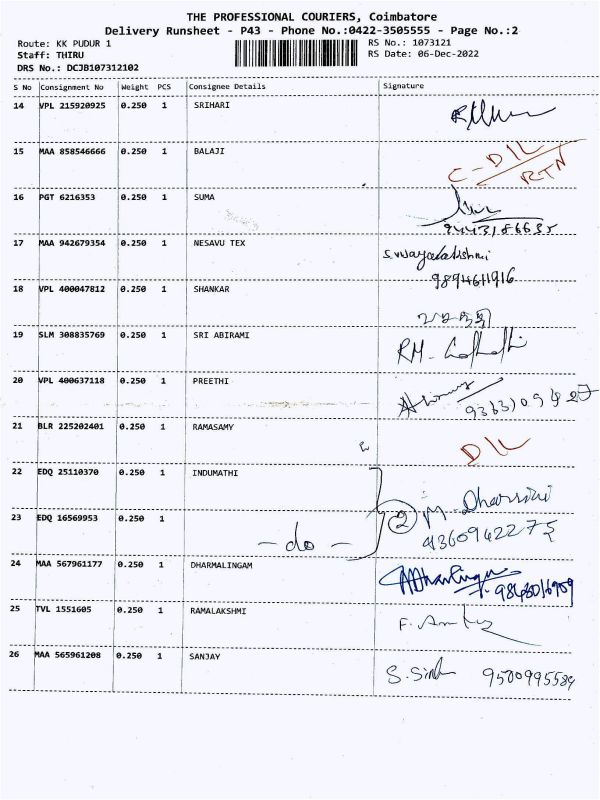 THE PROFESSIONAL COURIERS, Coimbatore
Delivery Runsheet - P43 - Phone No.:0422-3505555 - Page No.:2
Route: KK PUDUR 1 RS No.: 1073121
Staff: THIRU RS Date: 06-Dec-2022
DRS No.: DCJB107312102
S No Consignment No Weight PCS Consignee Details Signature
14 VPL 215920925 0.250 1 SRIHARI
15 MAA 858546666 0.250 1 BALAJI C-D/L
RTN
16 PGT 6216353 0.250 1 SUMA
9443186635
17 MAA 942679354 0.250 1 NESAVU TEX S.vijayalakshmi
9894611916
18 VPL 400047812 0.250 1 SHANKAR
19 SLM 308835769 0.250 1 SRI ABIRAMI RM-
20 VPL 400637118 0.250 1 PREETHI
21 BLR 225202401 0.250 1 RAMASAMY D/L
22 EDQ 25110370 0.250 1 INDUMATHI M-Dharsini
23 EDQ 16569953 0.250 1 -do- 2 9360942275
24 MAA 567961177 0.250 1 DHARMALINGAM
25 TVL 1551605 0.250 1 RAMALAKSHMI
26 MAA 565961208 0.250 1 SANJAY 9500995584